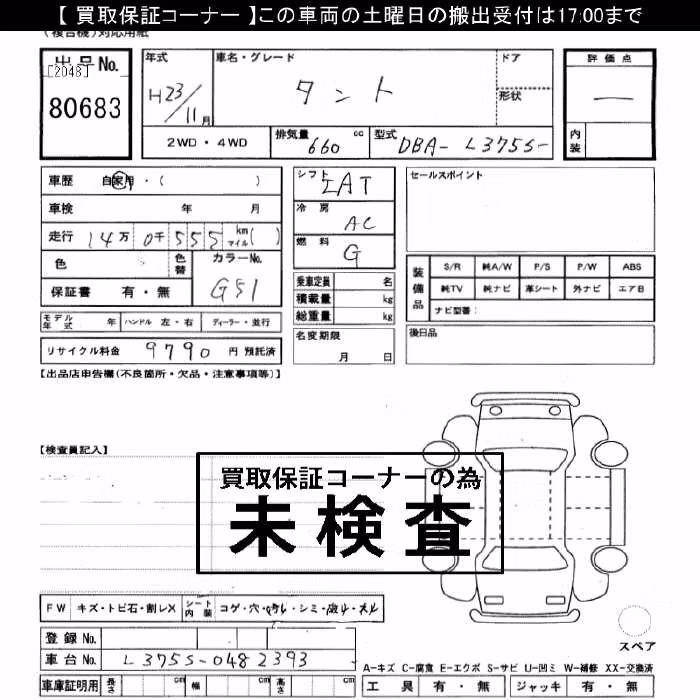 【 買取保証コーナー 】この車両の土曜日の搬出受付は17:00まで
(複合機)対応用紙
出品No.
[2048]
80683
年式
H23/11月
車名・グレード
タント
ドア
形状
評価点
—
内装
2WD・4WD
排気量 660 cc
型式 DBA- L375S-
車歴 自家用・( )
車検 年 月
走行 14万 0千 5 5 5 km マイル( )
色
色替
カラーNo.
G51
保証書 有・無
モデル年式 年 ハンドル 左・右 ディーラー・並行
リサイクル料金 9790 円 預託済
シフト IAT
冷房 AC
燃料 G
乗車定員 名
積載量 kg
総重量 kg
名変期限
月 日
セールスポイント
装備品
S/R 純A/W P/S P/W ABS
純TV 純ナビ 革シート 外ナビ エアB
ナビ型番:
後日品
【出品店申告欄(不良箇所・欠品・注意事項等)】
【検査員記入】
買取保証コーナーの為
未検査
FW キズ・トビ石・割レX シート内装 コゲ・穴・切レ・シミ・破レ・スレ
登録No.
車台No. L375S-0482393
車庫証明用 長さ 幅 高さ
スペア
A-キズ C-腐食 E-エクボ S-サビ U-凹ミ W-補修 XX-交換済
工具 有・無 ジャッキ 有・無